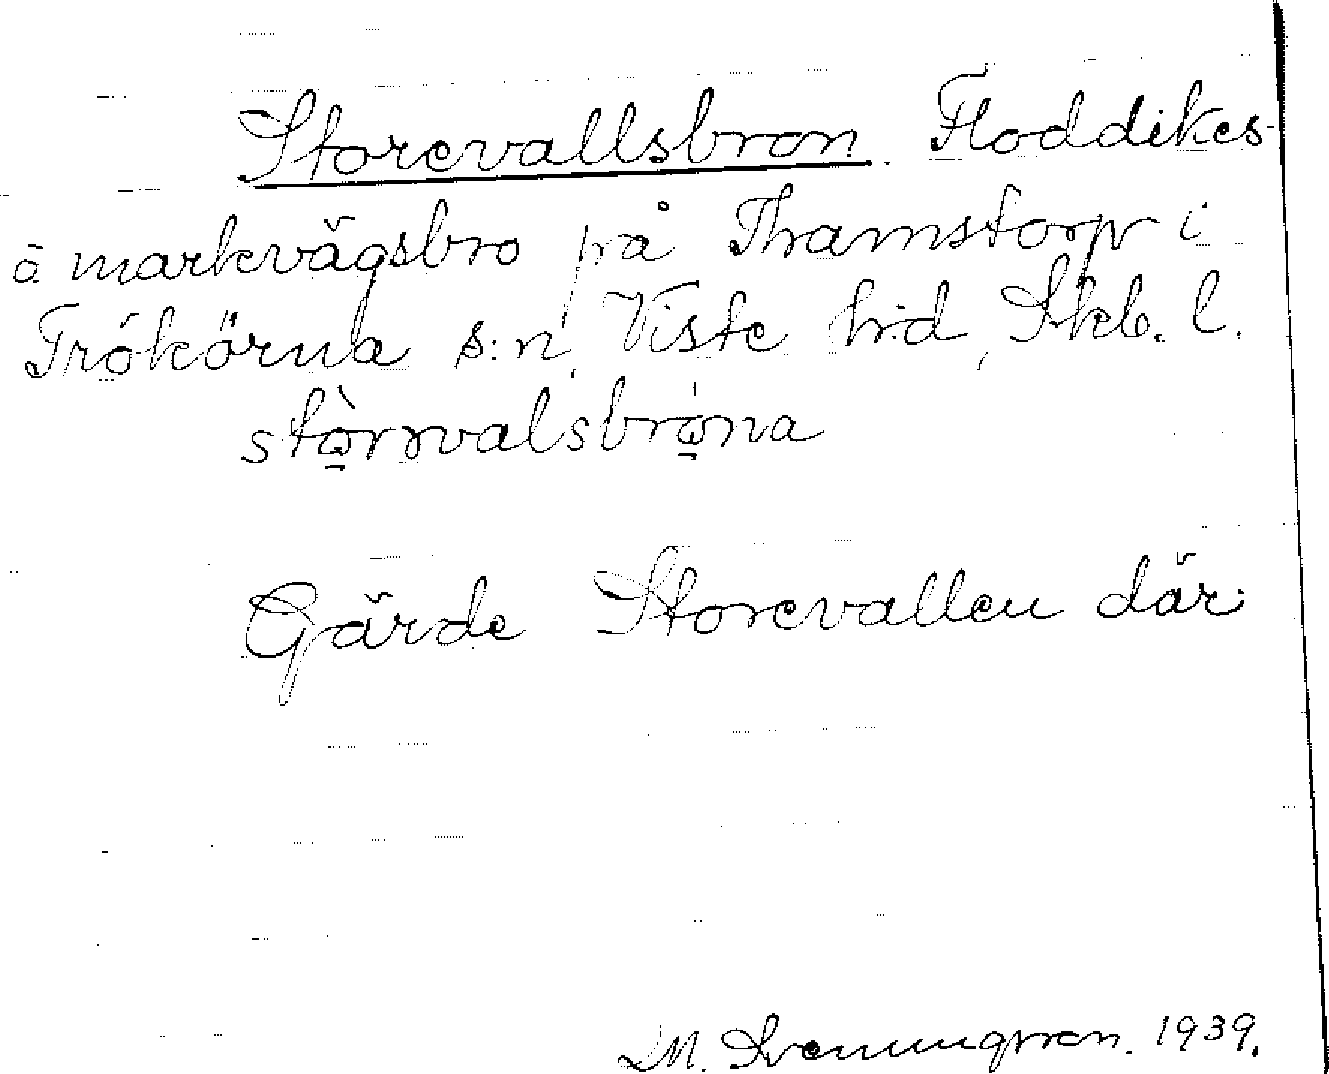 Storevallsbron. Floddikes-
å markvägsbro på Thamstorp i
Trökörna s:n, Viste hd, Skb. l.
stòrrvalsbróna
Gärde Storevallen där
M. Svenungsson. 1939.